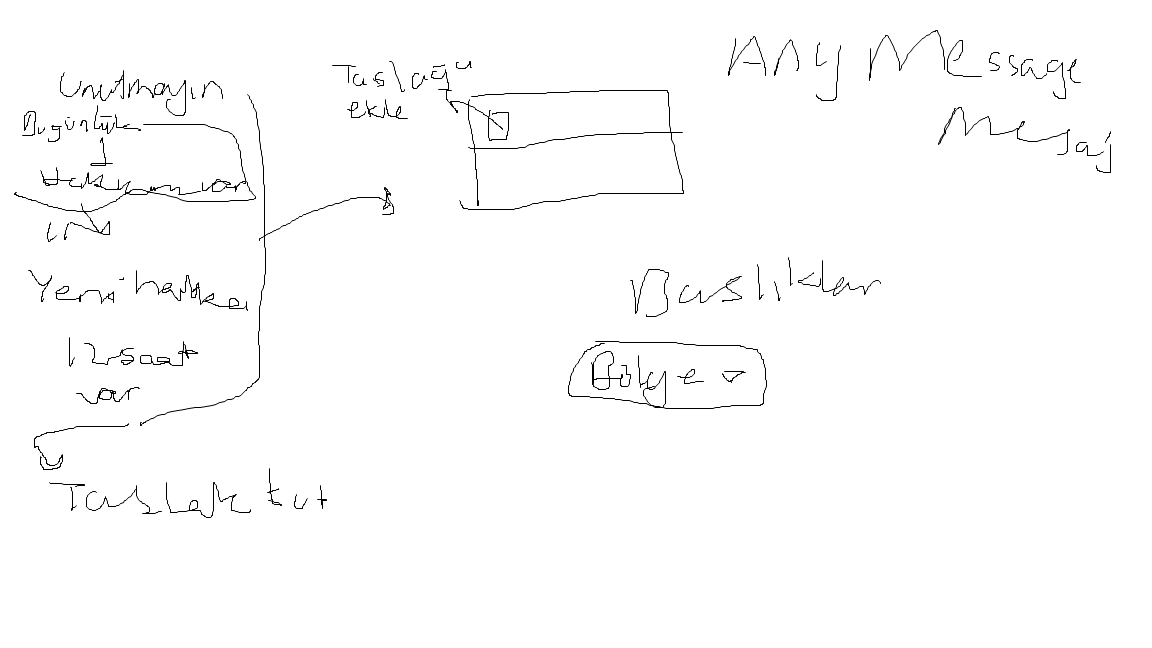 Unutmayın
Bugünlük
1
Hakkınız var
Yeni hakka
12 saat
var
Taslak tut
Taslağı
ekle
Any Message
Mesaj
Başlıklar
Bölge